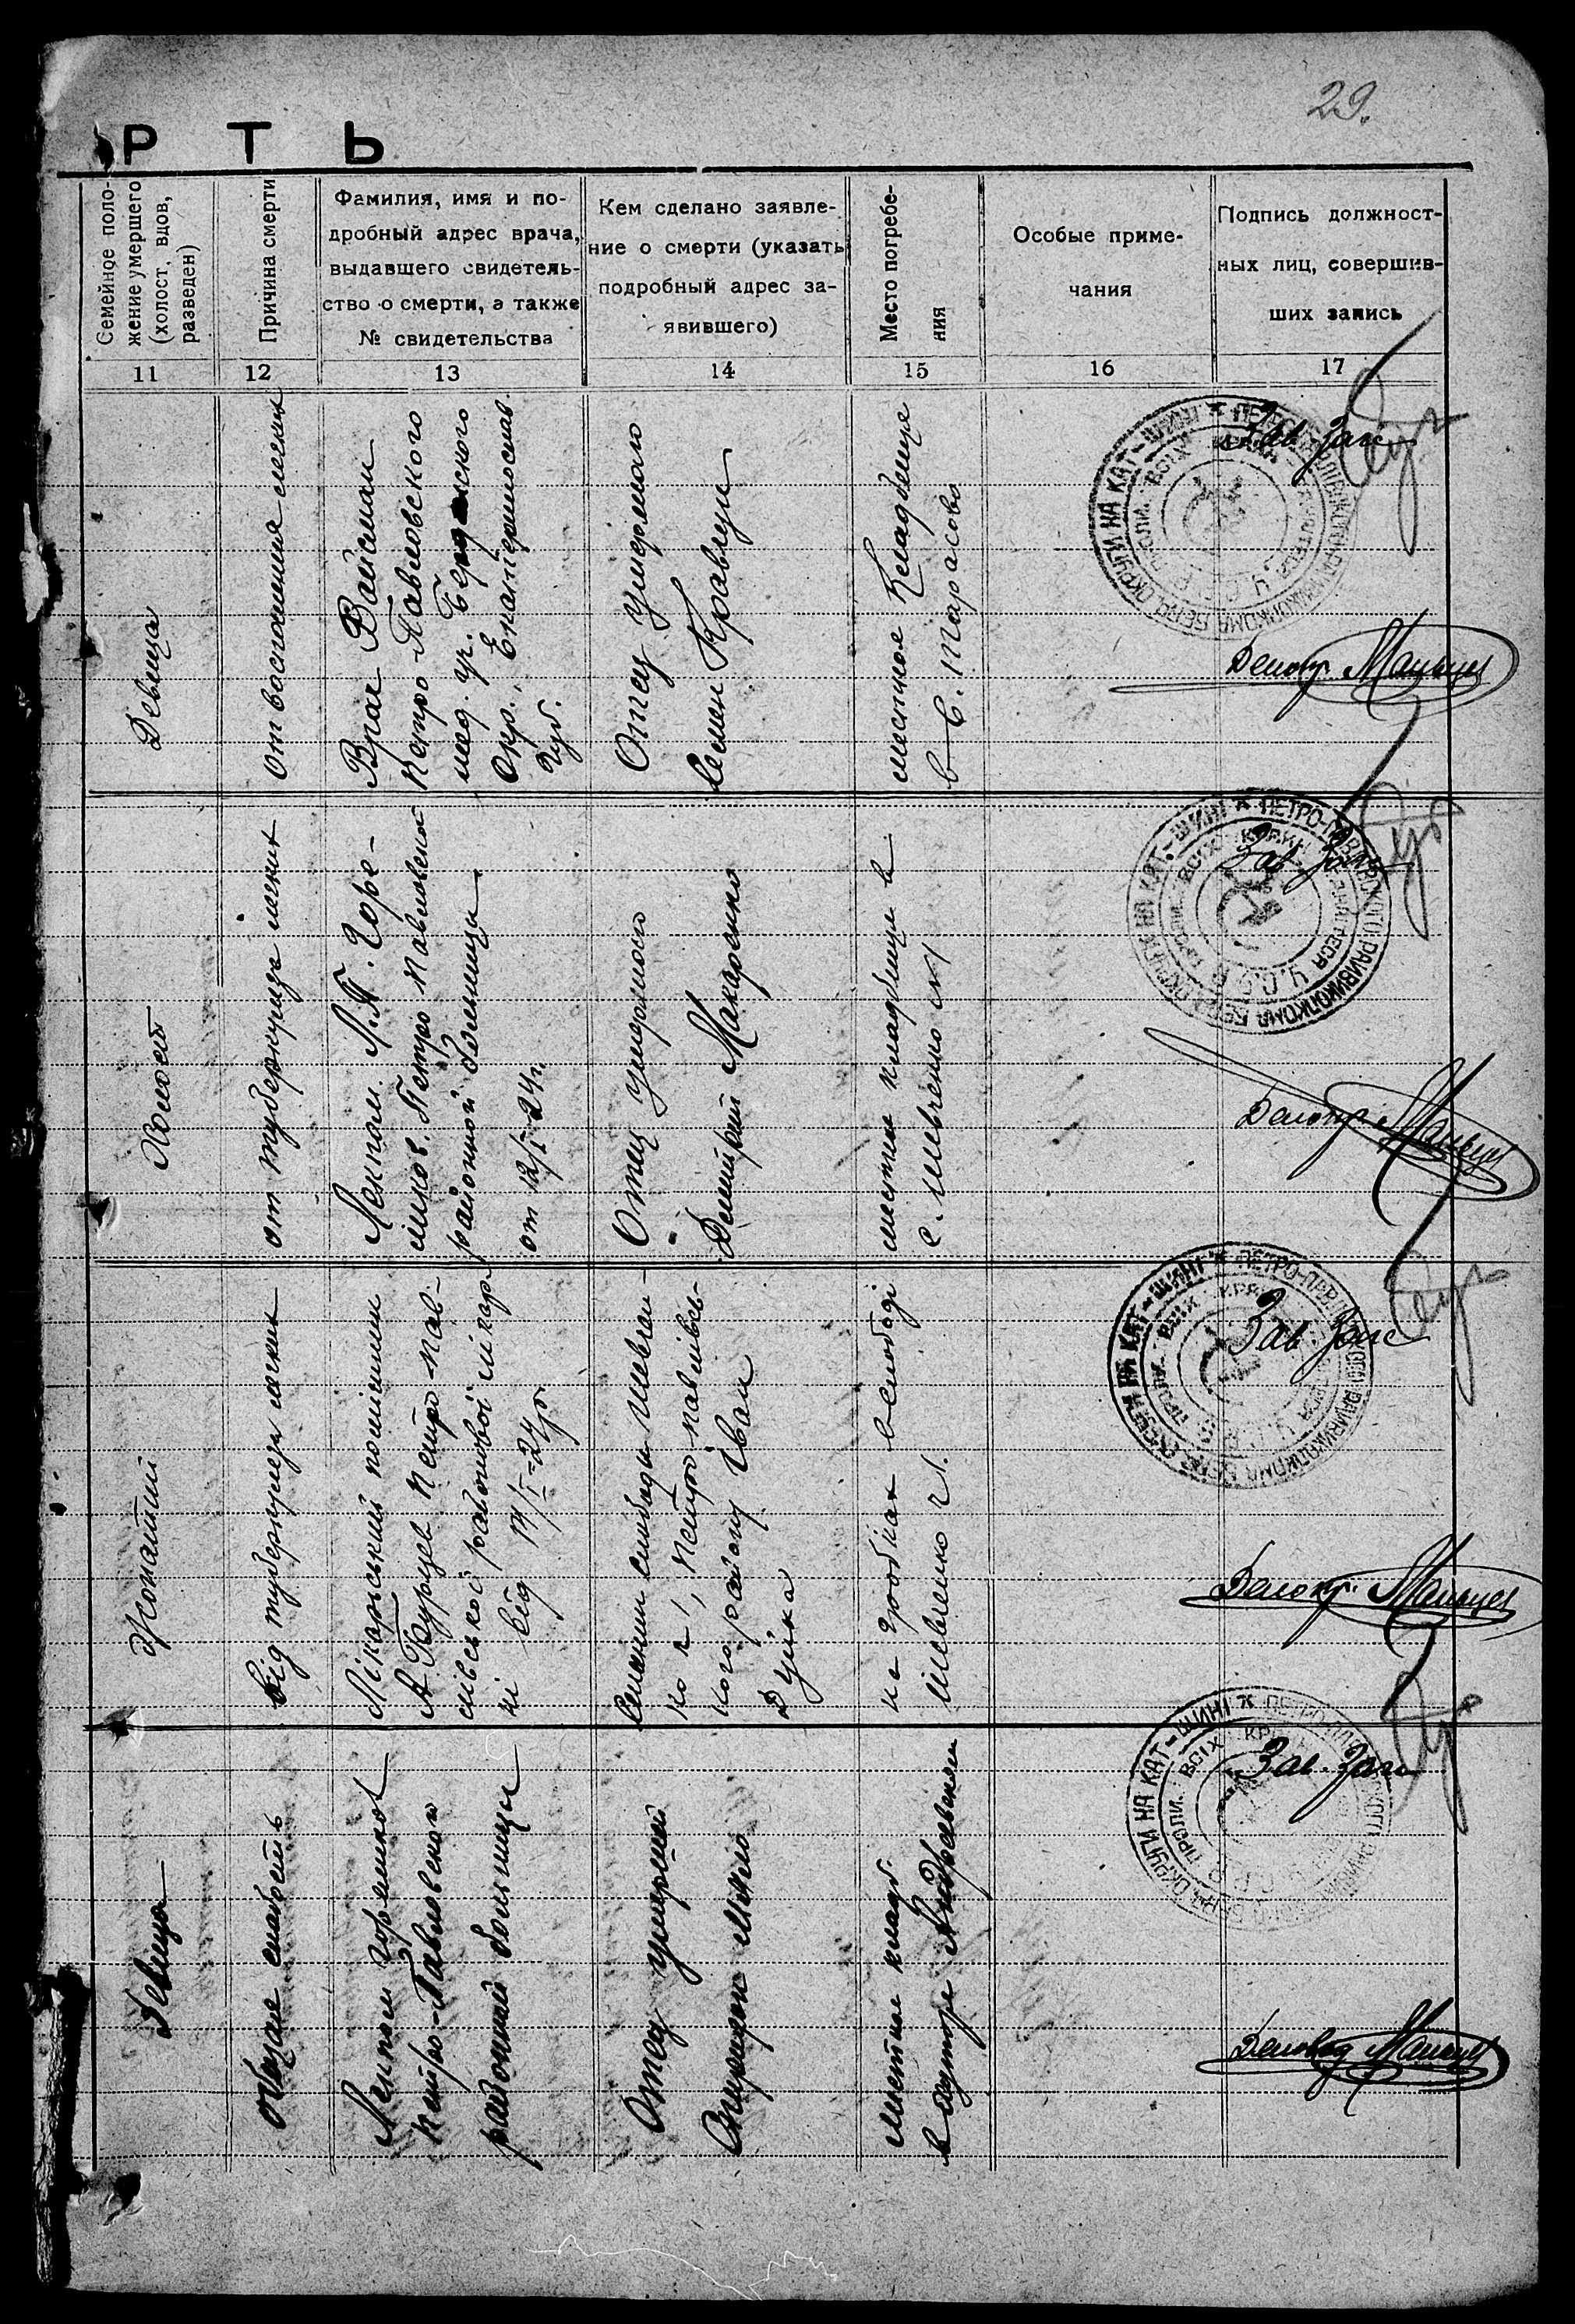 29.
Р Т Ь
Семейное поло-
жение умершего
(холост, вдов,
разведен)
Причина смерти
Фамилия, имя и по-
дробный адрес врача,
выдавшего свидетель-
ство о смерти, а также
№ свидетельства
Кем сделано заявле-
ние о смерти (указать
подробный адрес за-
явившего)
Место погребе-
ния
Особые приме-
чания
Подпись должност-
ных лиц, совершив-
ших запись
11
12
13
14
15
16
17
Девица
от воспаления легких
Врач Вайсман
Петро-Павловского
мед. уч.
Окр., Екатеринослав.
Губ.
Отец умершего
Семен Кравцун
местное Кладбище
в С. Тарасово
Зав Загс
Делопр. Мальцев
Холост
от туберкулеза легких
Лекпом. Л.П. Горе-
ликов. Петро Павловской
районной больницы
от 12/I-24г.
Отец умершего
Дмитрий Макаренко
местном кладбище в
с. Шевченко №1
Зав Загс
Делопр. Мальцев
Жонатий
Від туберкулеза легких
Лікарський помішник
А. Бурцев Петро-Пав-
лівської районової лікар-
ні від 14/I-24р.
Селянин слободи Шевчен-
ко №1, Петро-Павлівсь-
кого району Іван
Дуйка
на гробках в слободі
Шевченко №1.
Зав Загс
Делопр. Мальцев
Девица
общая слабость
Лекпом Гореликов
Петро-Павловской
районной больницы
Отец умершей
местное кладб.
в хуторе Андреевском
Зав. Загс
Деловод Мальцев